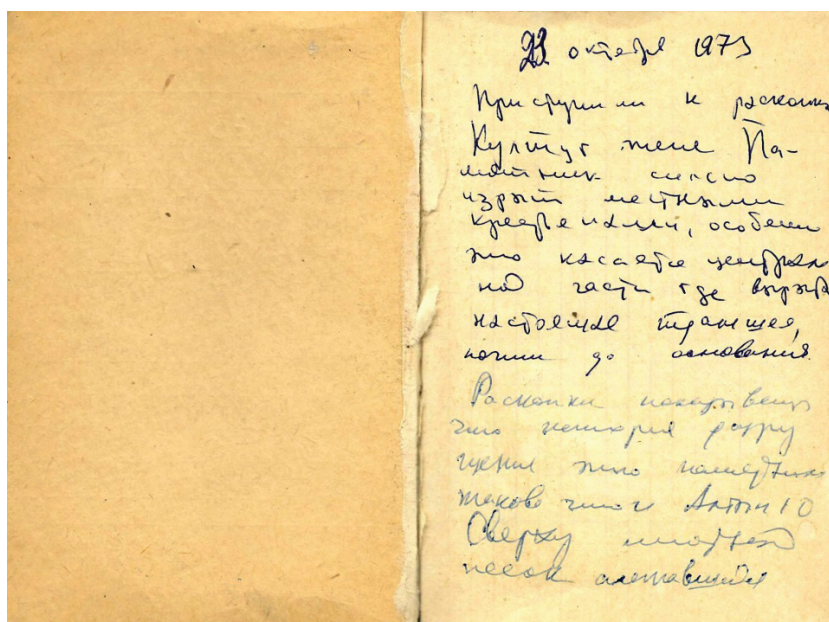 23 октября 1973
Приступили к раскопк
Культур тепе Па-
мятник сильно
изрыт местными
крестьянами, особенно
это касается централь
ной части где вырыта
настоящая траншея,
почти до основания
Раскопки показывают
что история разру
шения этого памятника
такова что и Алтын 10
Сверху
песок слежавшийся